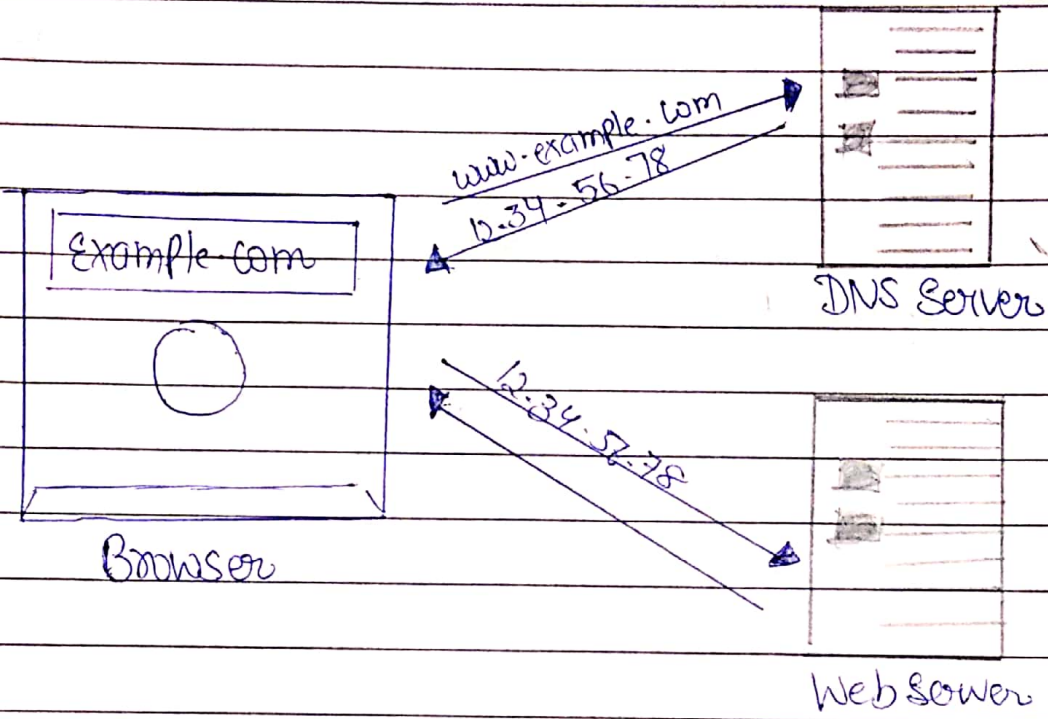 www.example.com
12.34.56.78
Example.com
DNS Server
12.34.57.78
Browser
Web Server